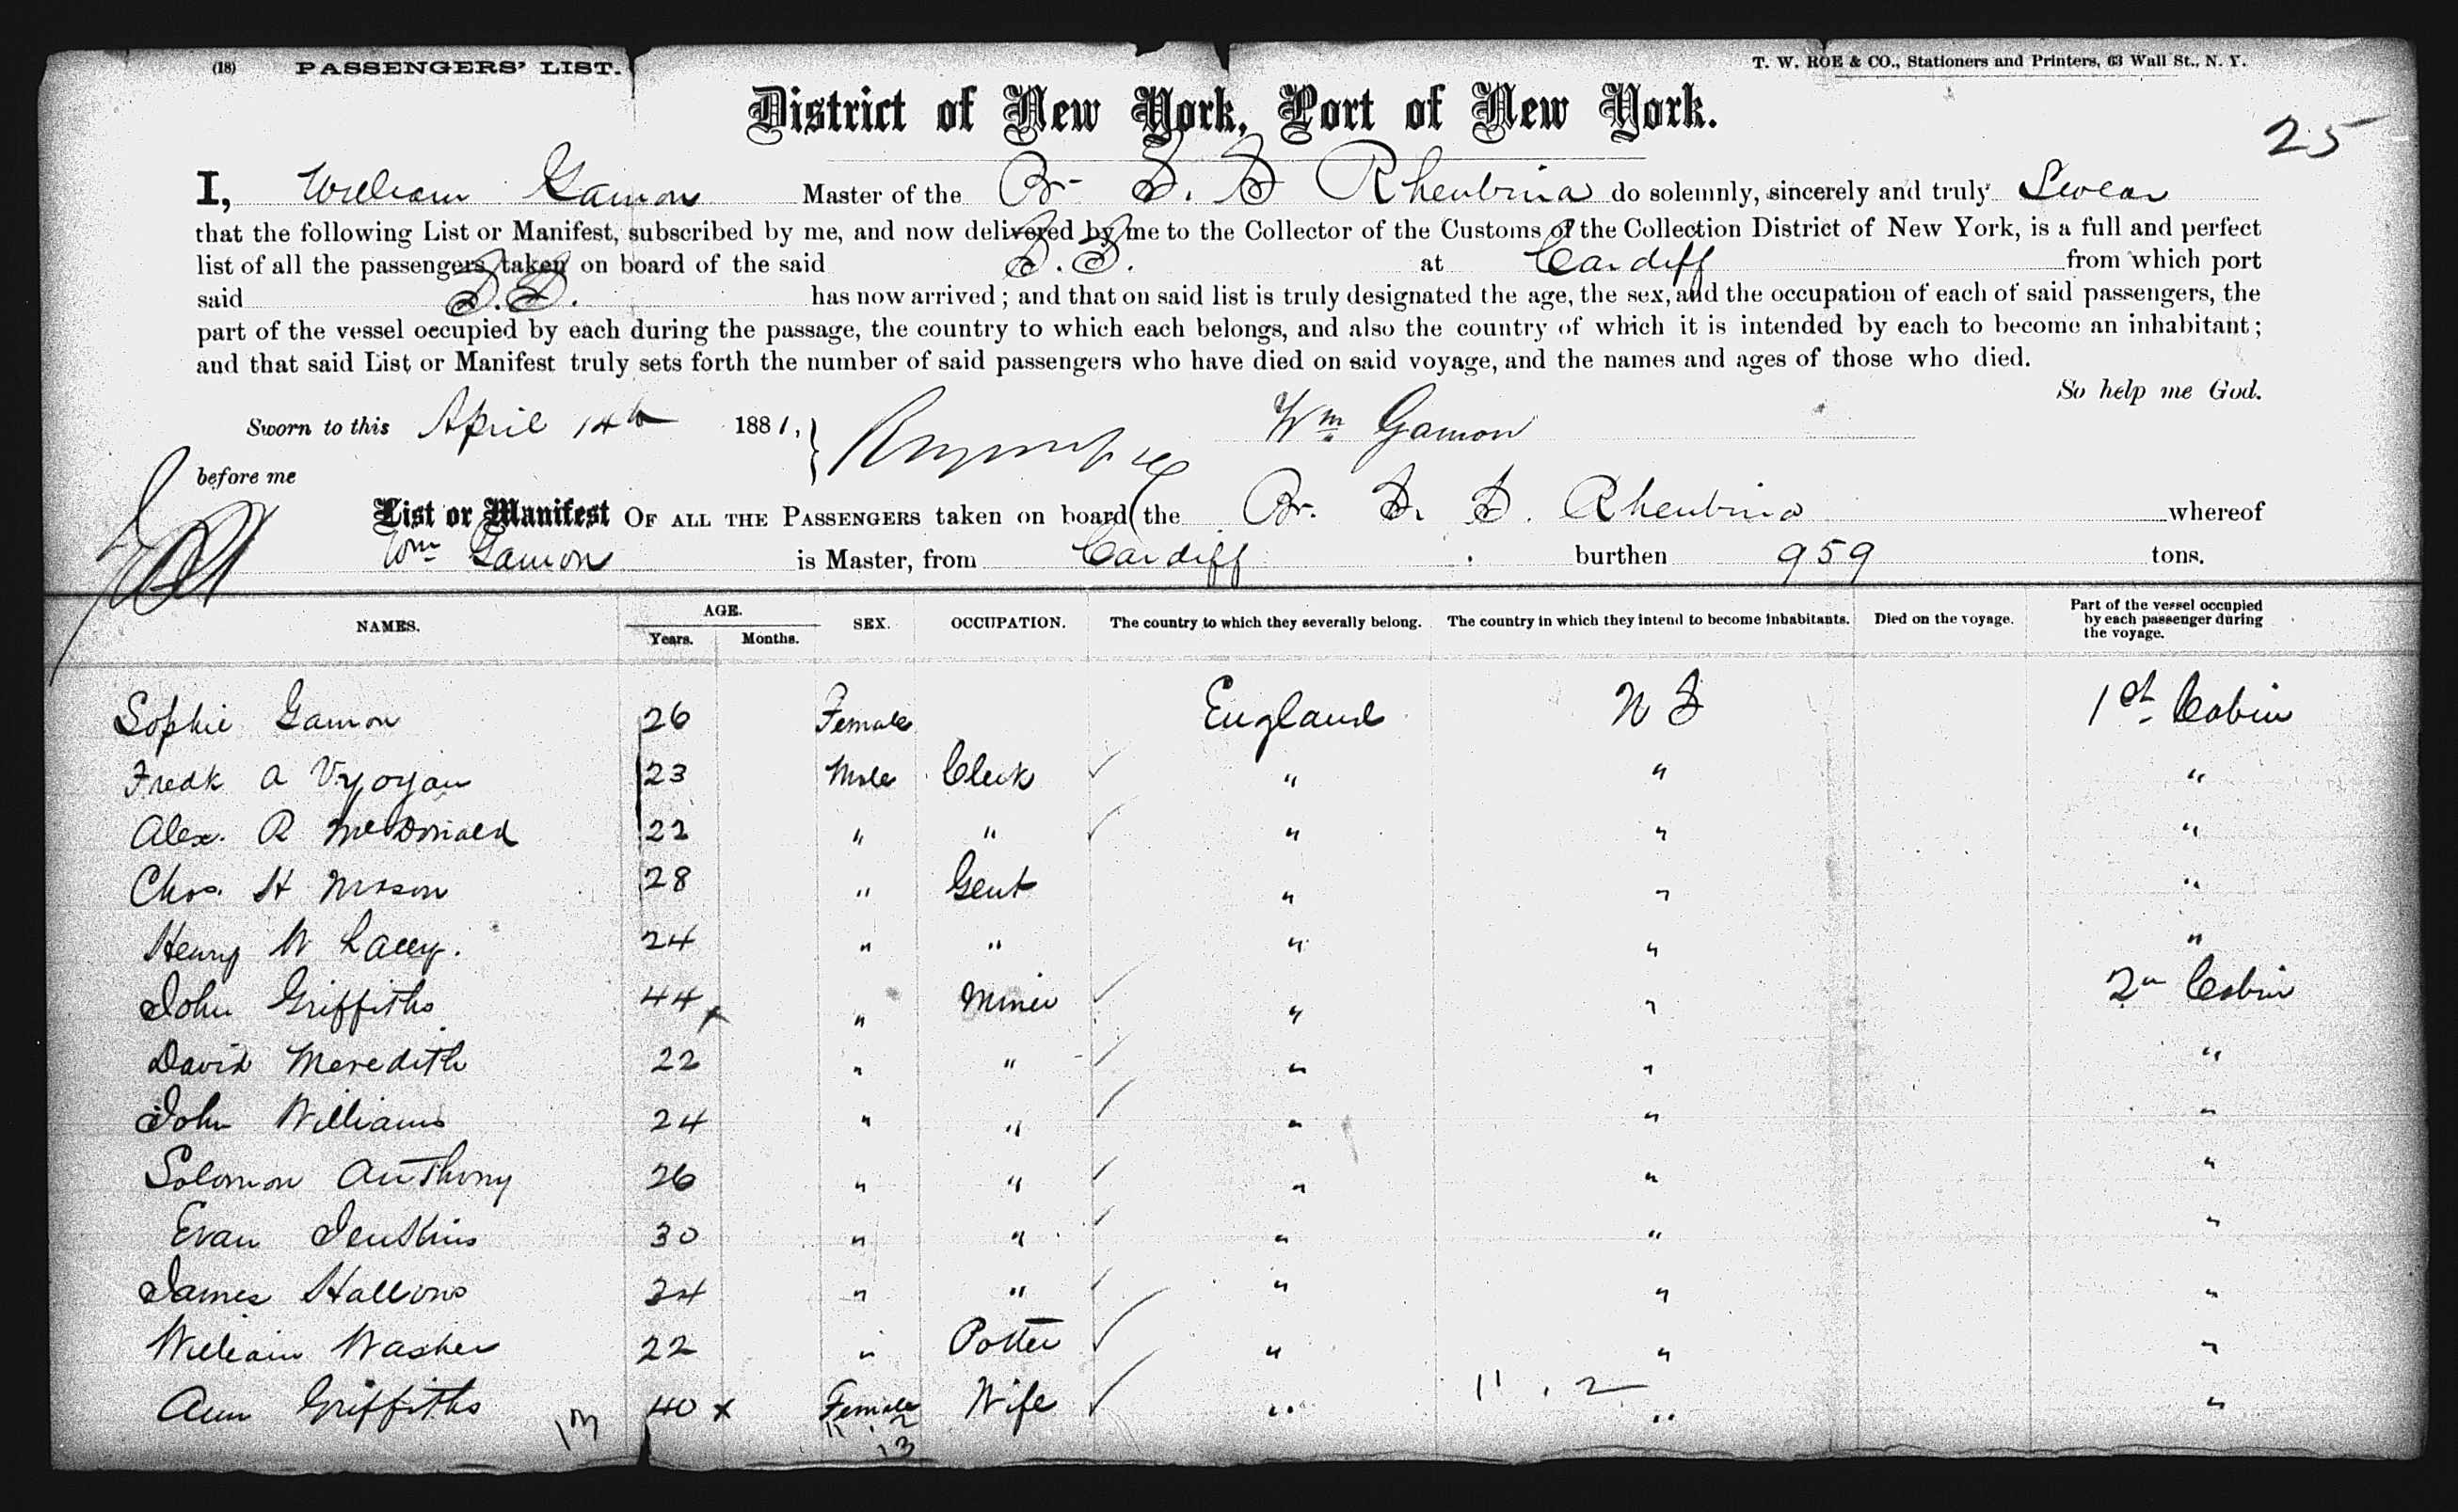 (18) PASSENGERS' LIST.
T. W. ROE & CO., Stationers and Printers, 63 Wall St., N. Y.
District of New York, Port of New York.
25
I, William Gamon Master of the Br S. S Rheubina do solemnly, sincerely and truly Swear
that the following List or Manifest, subscribed by me, and now delivered by me to the Collector of the Customs of the Collection District of New York, is a full and perfect
list of all the passengers taken on board of the said S.S. at Cardiff from which port
said S.S. has now arrived; and that on said list is truly designated the age, the sex, and the occupation of each of said passengers, the
part of the vessel occupied by each during the passage, the country to which each belongs, and also the country of which it is intended by each to become an inhabitant;
and that said List or Manifest truly sets forth the number of said passengers who have died on said voyage, and the names and ages of those who died.
So help me God.
Sworn to this April 14th 1881, Wm Gamon
before me
List or Manifest OF ALL THE PASSENGERS taken on board the Br. S. S. Rheubina whereof
Wm Gamon is Master, from Cardiff . burthen 959 tons.
NAMES. AGE. Years. Months. SEX. OCCUPATION. The country to which they severally belong. The country in which they intend to become inhabitants. Died on the voyage. Part of the vessel occupied by each passenger during the voyage.
Sophie Gamon 26 Female England U S 1st Cabin
Fredk A Vyoyan 23 Male Clerk " " "
Alex. R McDonald 22 " " " " "
Chas. H Mason 28 " Gent " " "
Henry W Lacey. 24 " " " " "
John Griffiths 44 x " Miner " " 2n Cabin
David Meredith 22 " " " " "
John Williams 24 " " " " "
Solomon Anthony 26 " " " " "
Evan Jenkins 30 " " " " "
James Hallows 24 " " " " "
William Washer 22 " Potter " " "
Ann Griffiths 40 x Female Wife " " "
11 . 2
13
11 . 2
13